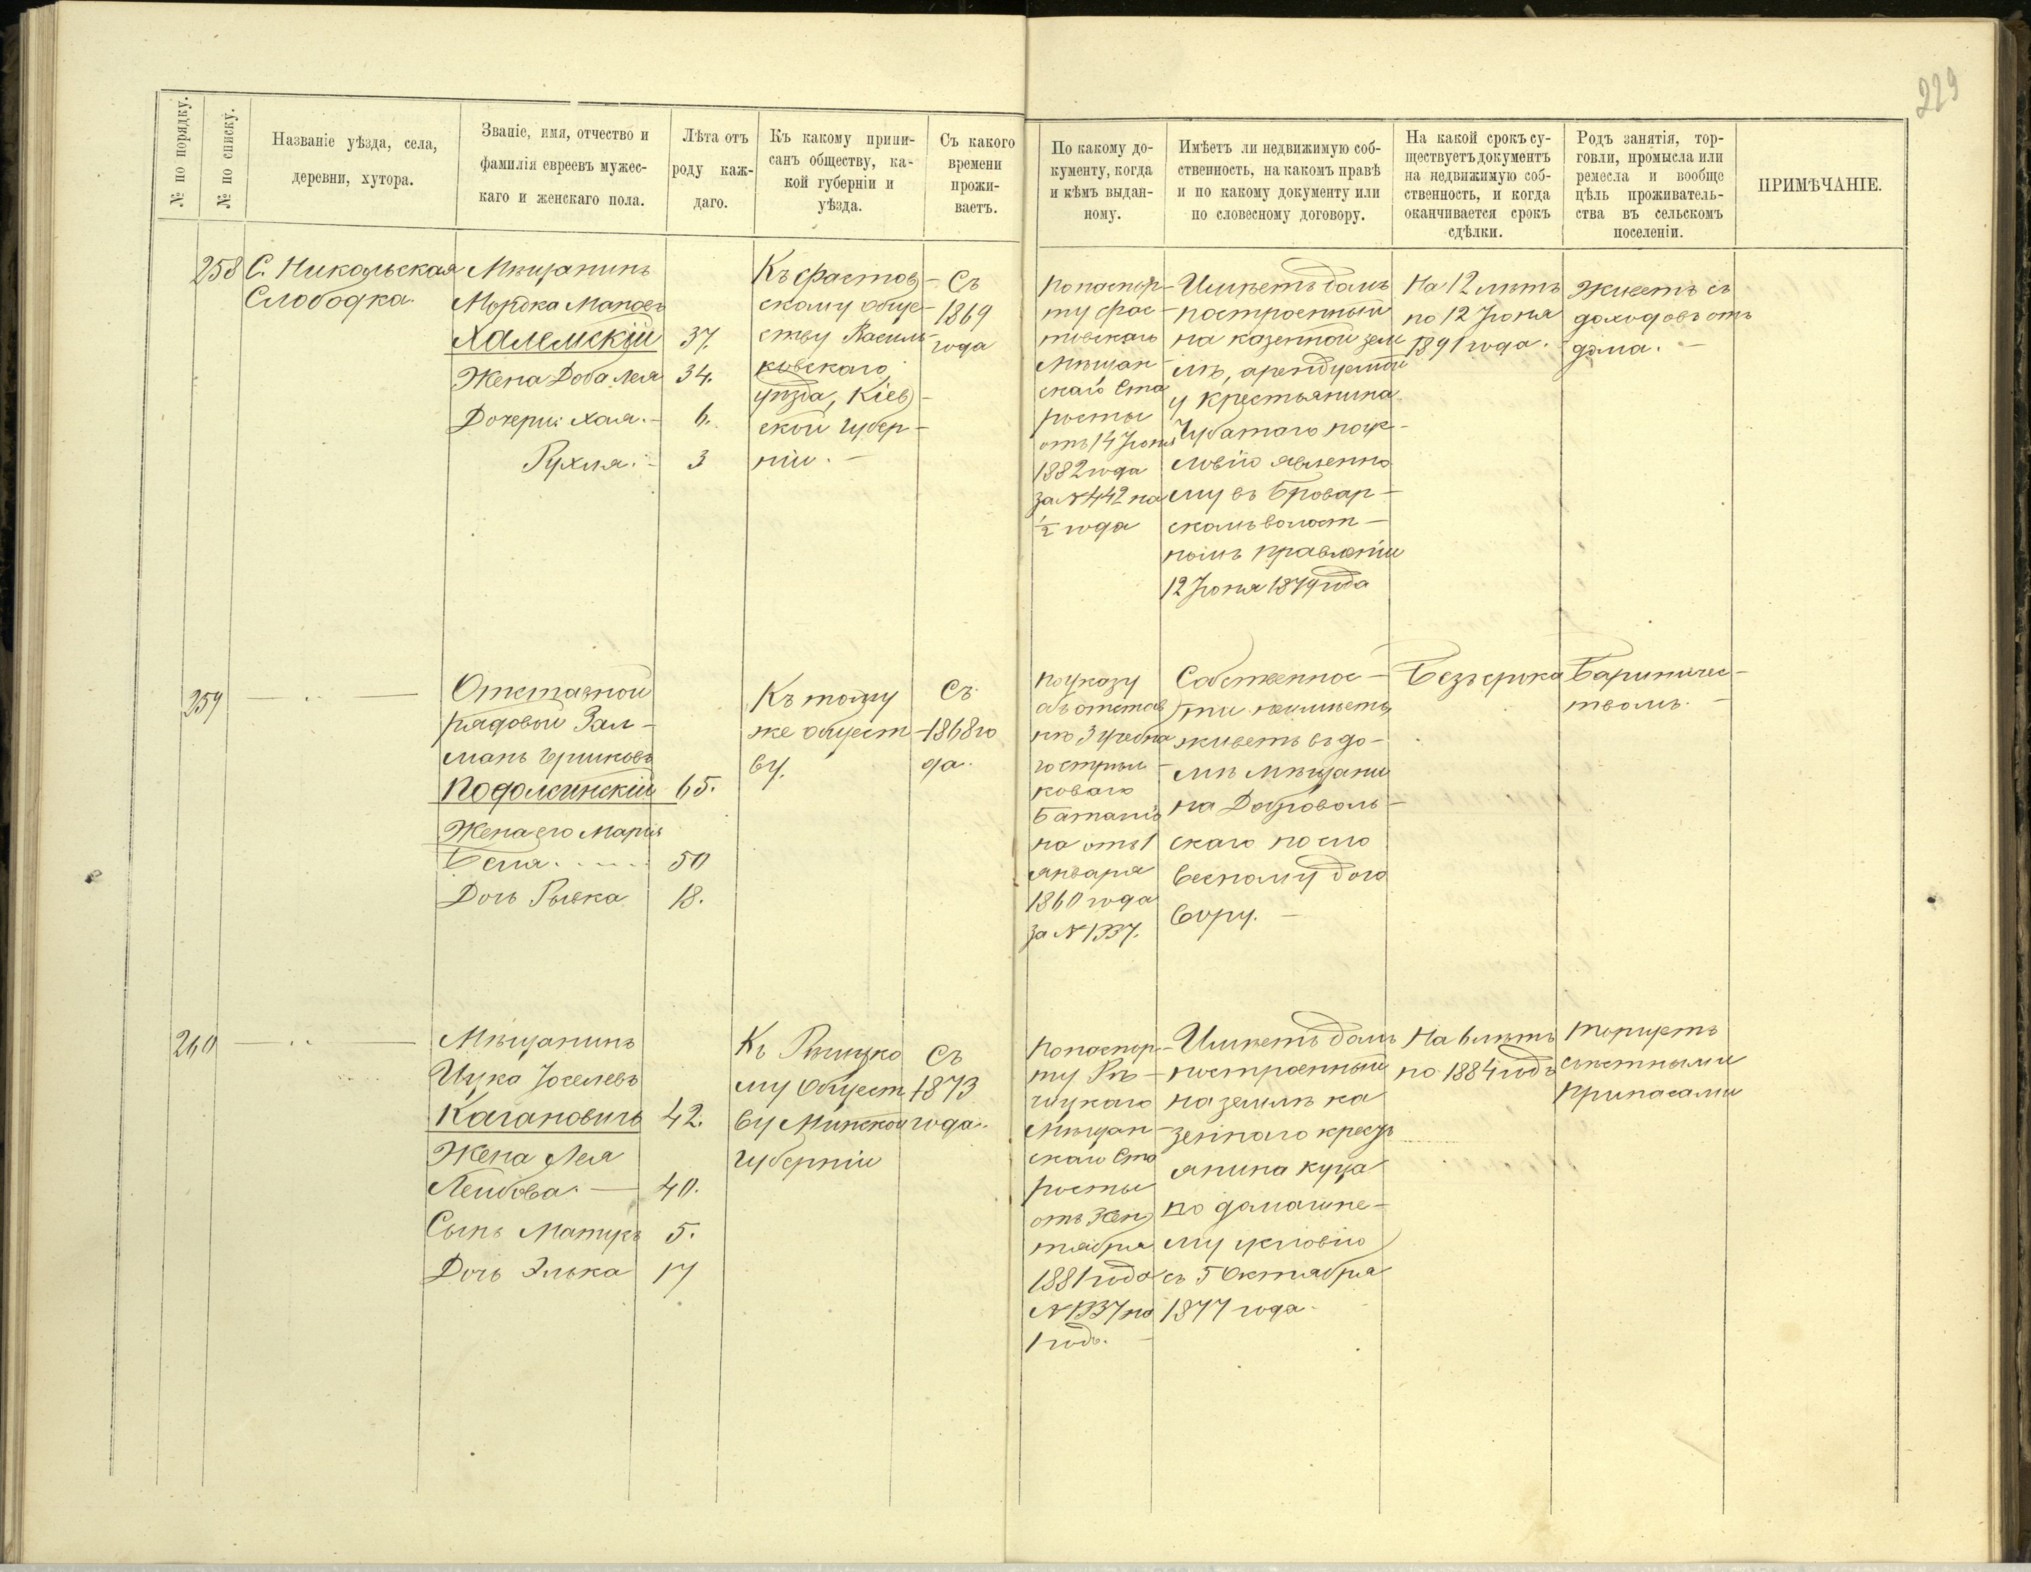 229
№ по порядку.
№ по списку.
Названіе уѣзда, села,
деревни, хутора.
Званіе, имя, отчество и
фамилія евреевъ мужес-
каго и женскаго пола.
Лѣта отъ
роду каж-
даго.
Къ какому припи-
санъ обществу, ка-
кой губерніи и
уѣзда.
Съ какого
времени
прожи-
ваетъ.
По какому до-
кументу, когда
и кѣмъ выдан-
ному.
Имѣетъ ли недвижимую соб-
ственность, на какомъ правѣ
и по какому документу или
по словесному договору.
На какой срокъ су-
ществуетъ документъ
на недвижимую соб-
ственность, и когда
оканчивается срокъ
сдѣлки.
Родъ занятія, тор-
говли, промысла или
ремесла и вообще
цѣль проживатель-
ства въ сельскомъ
поселеніи.
ПРИМѢЧАНІЕ.
258
С. Никольская
Слободка
Мѣщанинъ
Мордка
Халемскій 37.
Жена Доба Лея 34.
Дочери: Хая. 6.
Рухля. 3
Къ Фастов-
скому обще-
ству Василь-
ковскаго
уѣзда, Кіев-
ской губер-
ніи.
Съ
1869
года
По паспор-
ту Фас-
товскаго
Мѣщан-
скаго Ста
росты
отъ 14 Іюня
1882 года
за № 442 на
½ года
Имѣетъ домъ
построенный
на казенной зем
лѣ, арендуемой
у крестьянина
Чубатаго по ус-
ловію явленно
му въ Бровар-
скомъ волост-
номъ правленіи
12 Іюня 1879 года
На 12 лѣтъ
по 12 Іюня
1891 года.
Живетъ съ
доходовъ отъ
дома.
259
Отставной
рядовой Зал-
манъ Гершковъ
Подолинскій 65.
Жена его Марія
Бейла 50
Дочь Рывка 18.
Къ тому
же общест-
ву.
Съ
1868 го
да.
По указу
объ отстав
кѣ 3 учебна
го стрѣл-
коваго
Баталіо
на отъ 1
января
1860 года
за № 1337.
Собственнос-
ти не имѣетъ,
живетъ въ до-
мѣ мѣщани
на Доброволь-
скаго по сло
весному дого
вору.
Безъ срока
Барышничес-
твомъ.
260
Мѣщанинъ
Ицка Іоселевъ
Кагановичъ 42.
Жена Лея
Лейбова 40.
Сынъ 5.
Дочь Элька 17
Къ Рѣчицко
му общест
ву Минской
губерніи
Съ
1873
года.
По паспор-
ту Рѣ-
чицкаго
Мѣщан-
скаго Ста
росты
отъ Сен
тября
1881 года
№ 1337 на
1 годъ.
Имѣетъ домъ
построенный
на землѣ ка
зеннаго кресть
янина Куца
по домашне-
му условію
съ 5 Октября
1877 года.
На 6 лѣтъ
по 1884 годъ
Торгуетъ
съѣстными
припасами